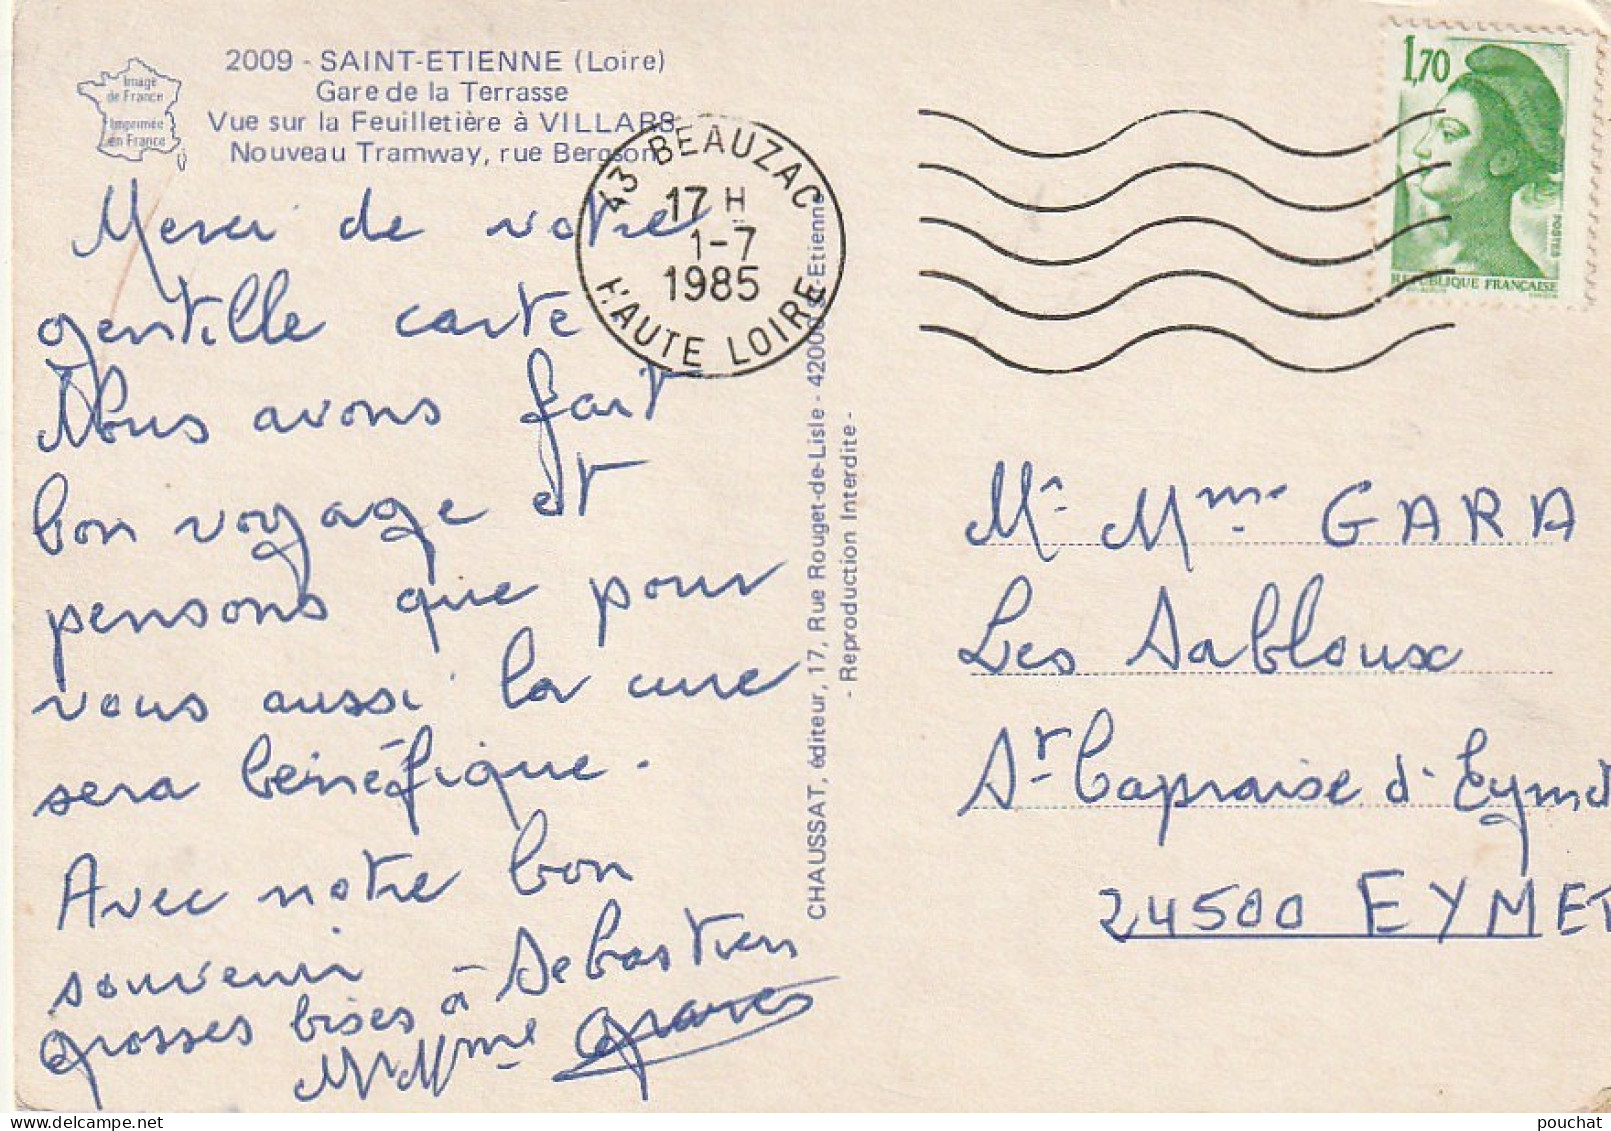 2009 - SAINT-ETIENNE (Loire)
Gare de la Terrasse
Vue sur la Feuilletière à VILLARS
Nouveau Tramway, rue Bergson
Image
de France
Imprimée
en France
Merci de votre
gentille carte
Nous avons fait
bon voyage et
pensons que pour
vous aussi la cure
sera bénéfique.
Avec notre bon
souvenir
grosses bises à Sebastien
Mr Mme
43 BEAUZAC
17 H
1-7
1985
HAUTE LOIRE
CHAUSSAT, éditeur, 17, Rue Rouget-de-Lisle - 42000 St-Etienne
- Reproduction Interdite -
1,70
POSTES
REPUBLIQUE FRANÇAISE
Mr Mme GARA
Les Sabloux
St Capraise d'Eymet
24500 EYMET
pouchat